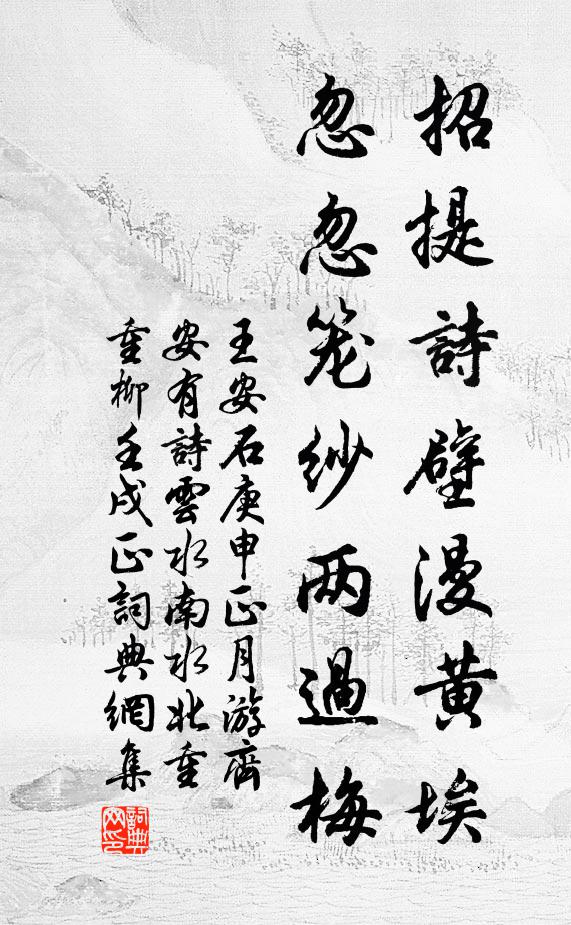 招提詩壁漫黃埃
忽忽笼纱两過梅
王安石庚申正月游齊
安有詩雲水南水北重
重柳壬戌正詞典網集
詞典
网印